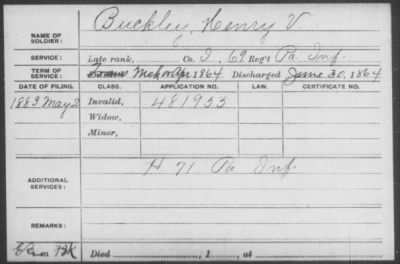 Buckley, Henry V
NAME OF SOLDIER:
SERVICE: Late rank, Co. I, 69 Reg't Pa. Inf.
TERM OF SERVICE: 1864 Discharged June 30, 1864
DATE OF FILING. CLASS. APPLICATION NO. LAW. CERTIFICATE NO.
1883 May 2 Invalid, 481933
Widow,
Minor,
ADDITIONAL SERVICES: H 71 Pa Inf.
REMARKS:
Died , 1 , at